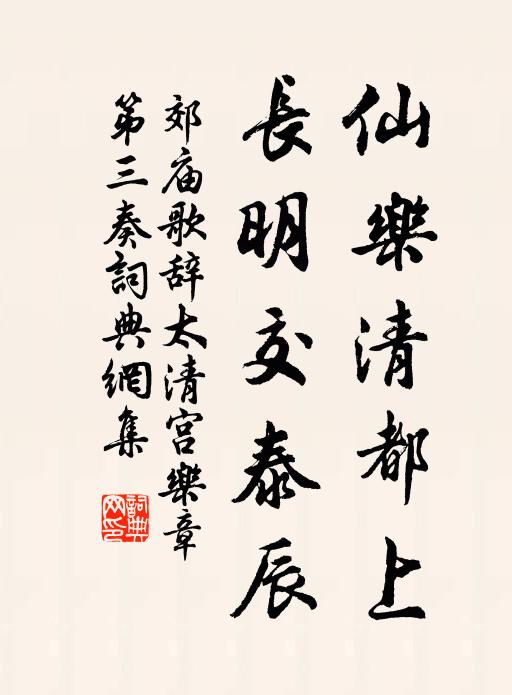 仙樂清都上
長明交泰辰
郊庙歌辞太清宫樂章
第三奏詞典網集
詞典
网印